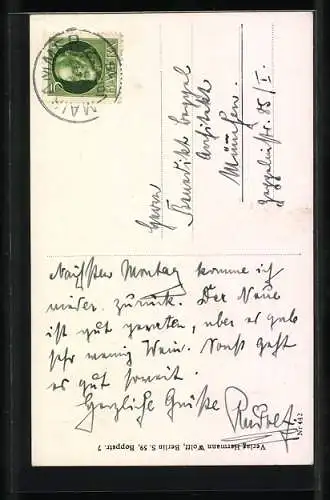 Nächsten Montag komme ich
wieder zurück. Der Neue
ist gut geraten, aber es gab
sehr wenig Wein. Sonst geht
es gut soweit.
Herzliche Grüße
Rudolf
Herrn
Benedikt
Architekt
München.
Zeppelinstr. 85/I.
BAYERN
Verlag Hermann Wolff, Berlin S. 59, Boppstr. 7
Nr. 412